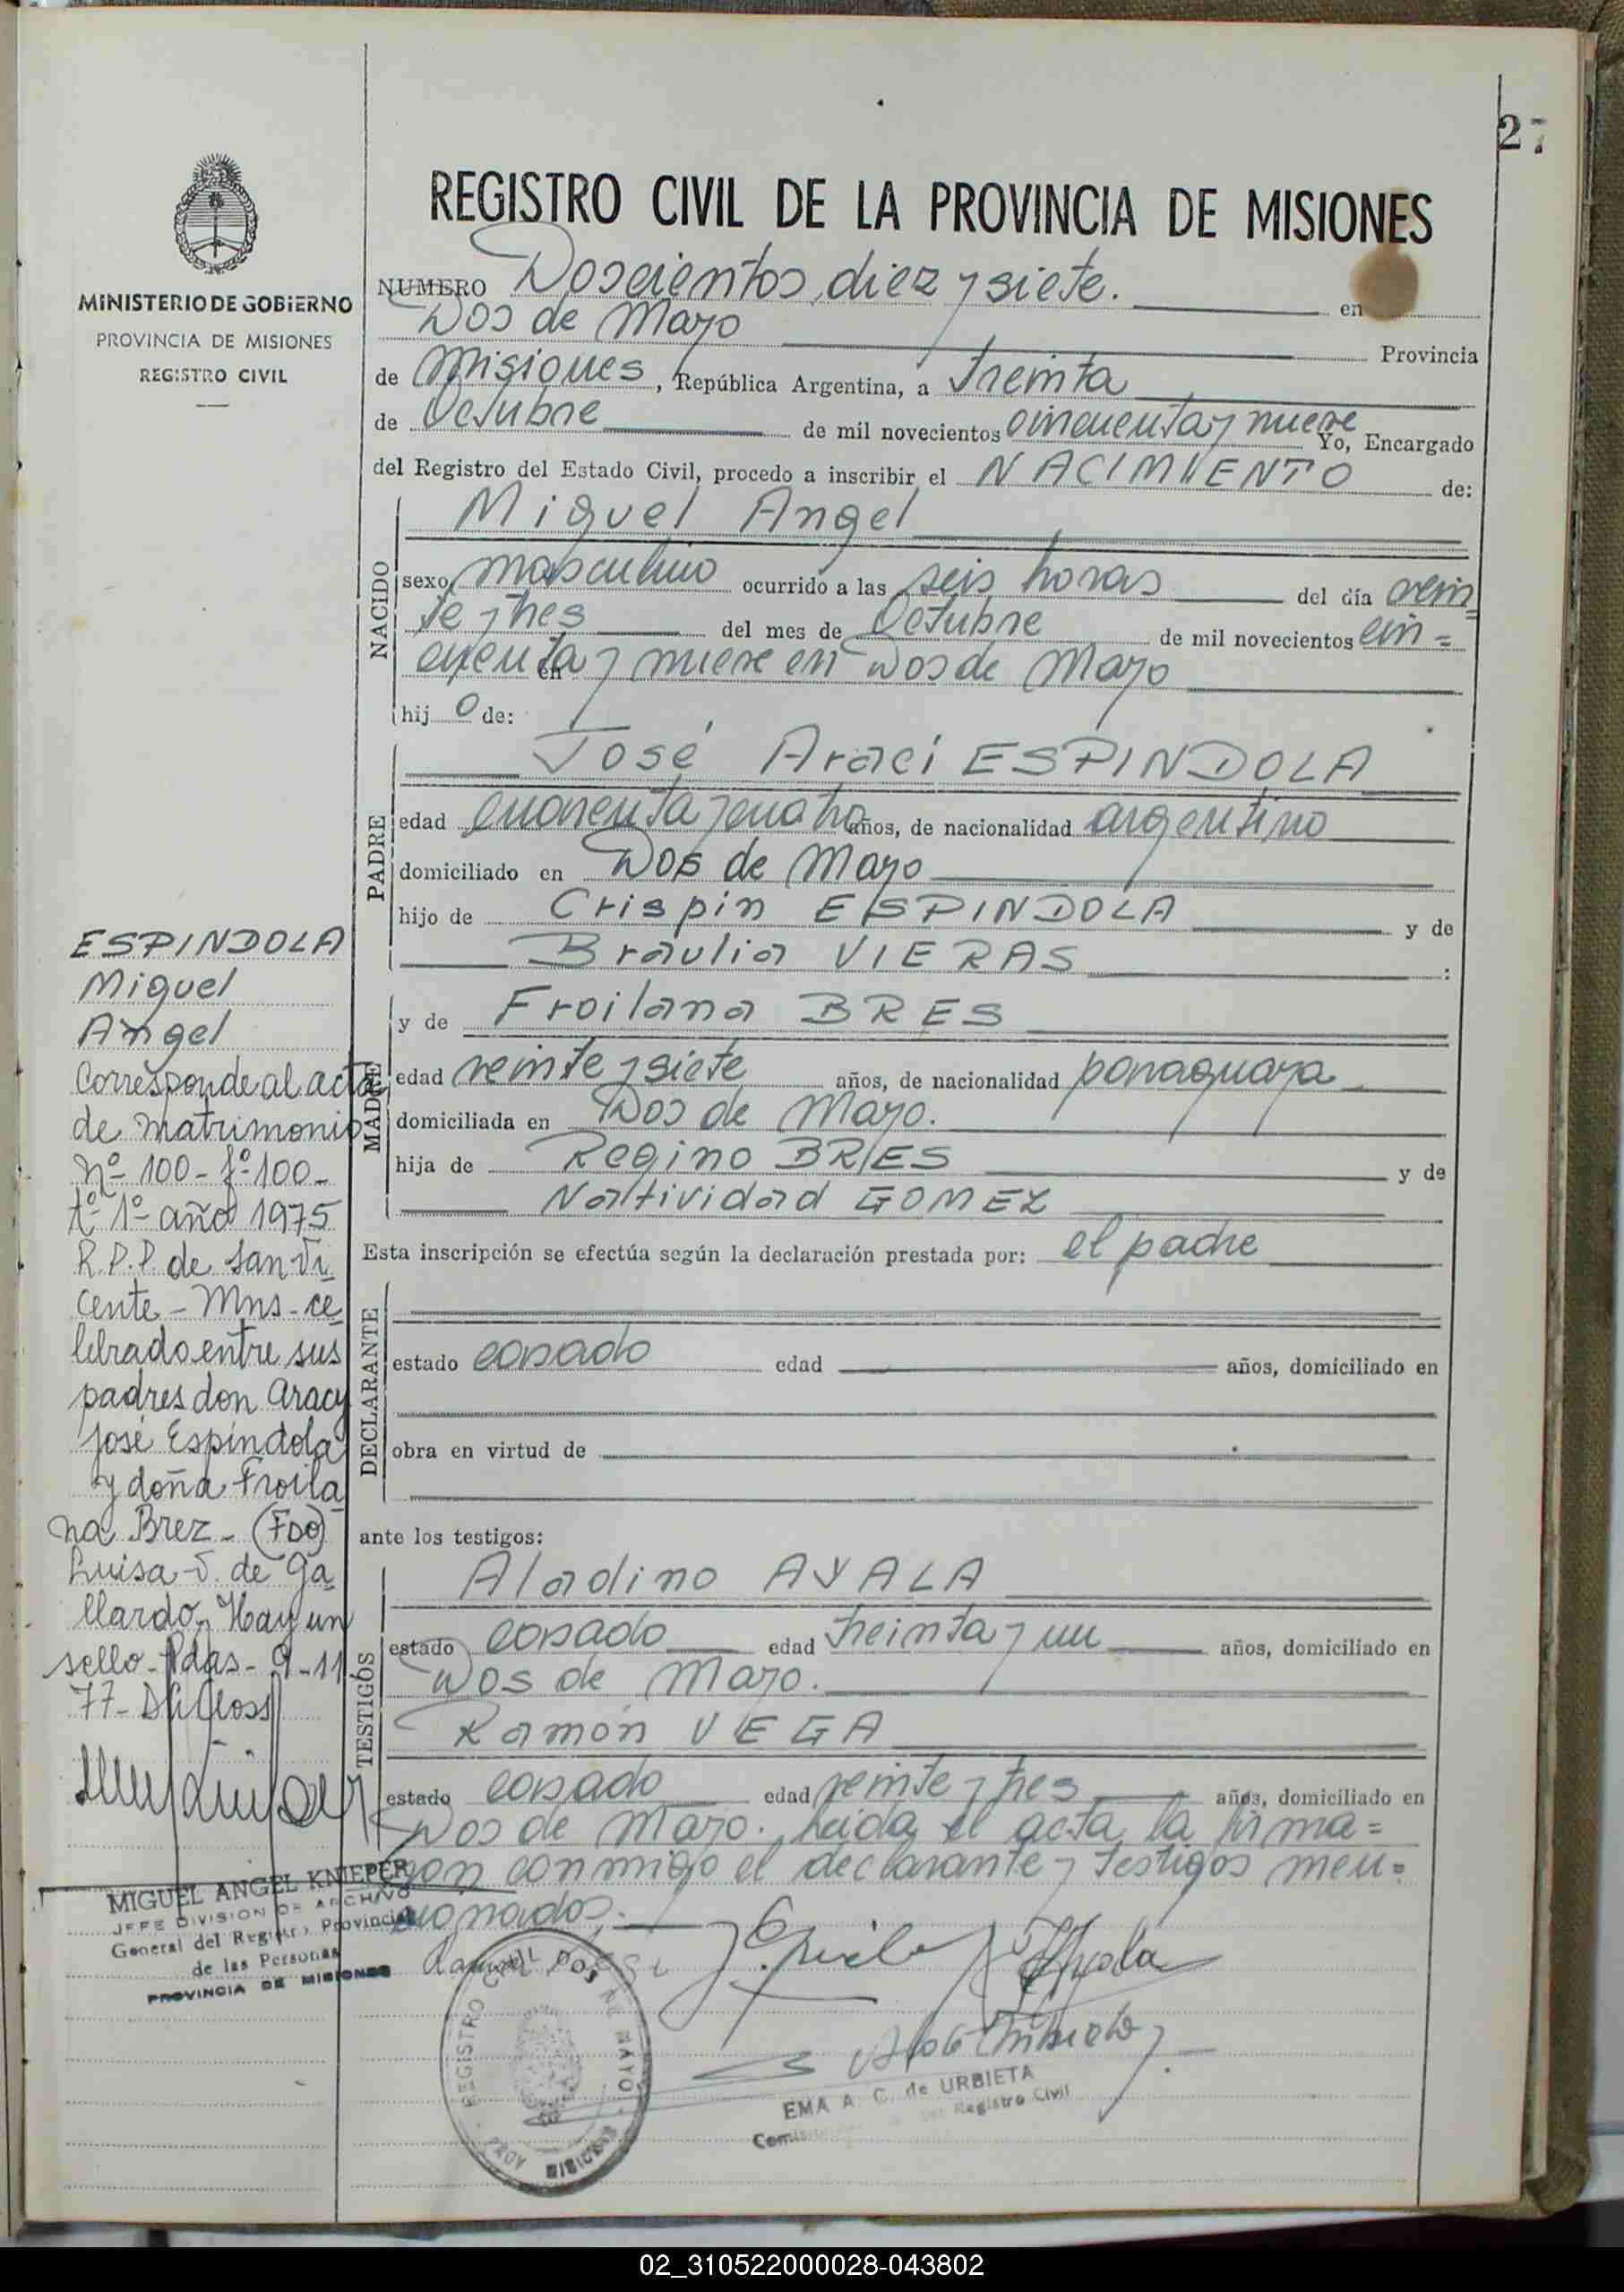 27
REGISTRO CIVIL DE LA PROVINCIA DE MISIONES
MINISTERIO DE GOBIERNO
PROVINCIA DE MISIONES
REGISTRO CIVIL
NUMERO Doscientos diez y siete. en
Dos de Mayo Provincia
de Misiones, República Argentina, a treinta
de Octubre de mil novecientos cincuenta y nueve Yo, Encargado
del Registro del Estado Civil, procedo a inscribir el NACIMIENTO de:
NACIDO
Miguel Angel
sexo masculino ocurrido a las seis horas del día vein
te y tres del mes de Octubre de mil novecientos cin=
cuenta y nueve en Dos de Mayo
en
hijo de:
PADRE
José Araci ESPINDOLA
edad cuarenta y cuatro años, de nacionalidad argentino
domiciliado en Dos de Mayo
hijo de Crispin ESPINDOLA y de
Braulia VIERAS :
MADRE
y de Froilana BRES
edad veinte y siete años, de nacionalidad paraguaya
domiciliada en Dos de Mayo.
hija de Regino BRES y de
Natividad GOMEZ
Esta inscripción se efectúa según la declaración prestada por: el padre
DECLARANTE
estado casado edad años, domiciliado en
obra en virtud de
ante los testigos:
TESTIGOS
Aladino AYALA
estado casado edad treinta y un años, domiciliado en
Dos de Mayo.
Ramón VEGA
estado casado edad veinte y tres años, domiciliado en
Dos de Mayo. Leida el acta la firma=
ron conmigo el declarante y testigos men=
cionados.
ESPINDOLA
Miguel
Angel
Corresponde al acta
de matrimonio
Nº 100 - fº 100 -
tº 1º año 1975
R.P.P. de San Vi
cente - Mns - ce
lebrado entre sus
padres don Aracy
José Espíndola
y doña Froila
na Brez - (FDO)
Luisa V. de Ga
llardo, Hay un
sello - Pdas - 9-11
77-
MIGUEL ANGEL KNIEPER
JEFE DIVISION DE ARCHIVO
General del Registro Provincial
de las Personas
PROVINCIA DE MISIONES
REGISTRO CIVIL DOS DE MAYO
PROV. MISIONES
EMA A. C. de URBIETA
Registro Civil
02_310522000028-043802